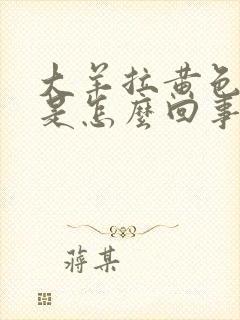 大羊拉黄色
是怎麼回事
蒋某